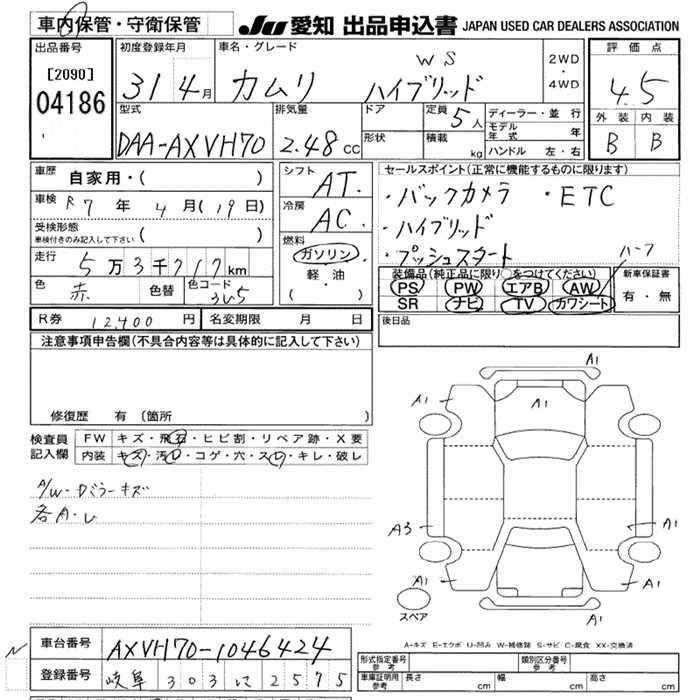 車内保管・守衛保管 JU 愛知 出品申込書 JAPAN USED CAR DEALERS ASSOCIATION
出品番号 初度登録年月 車名・グレード 評価点
[2090] 04186
31 4月 カムリ ハイブリッド WS 2WD・4WD 4.5
型式 排気量 ドア 定員 5人 ディーラー・並行 外装 内装
DAA-AXVH70 2.48CC 形状 積載 kg モデル年式 年 B B
ハンドル 左・右
車歴 自家用・( ) シフト AT. セールスポイント(正常に機能するものに限ります)
車検 R7年4月(19日) 冷房 AC. ・バックカメラ ・ETC
受検形態 車検付きのみ記入して下さい ( ) ・ハイブリッド
走行 5万3千717km 燃料 ガソリン・軽油・( ) ・プッシュスタート
色 赤 色替 色コード 3U5 装備品(純正品に限り○をつけてください) ハーフ 新車保証書
PS PW エアB AW 有・無
SR ナビ TV カワシート
R券 12,400円 名変期限 月 日 後日品
注意事項申告欄(不具合内容等は具体的に記入して下さい)
修復歴 有 (箇所 )
検査員記入欄 FW キズ・飛石・ヒビ割・リペア跡・X要
内装 キズ・汚レ・コゲ・穴・スレ・キレ・破レ
A/W・ドミラーキズ
各A・U
A1
A1 A1 A1
A3 A1
A1 A1
スペア
A-キズ E-エクボ U-凹み W-補修跡 S-サビ C-腐食 XX-交換済
車台番号 AXVH70-1046424 形式指定番号 参考 類別区分番号 参考
登録番号 岐阜 303 に 2575 車庫証明用 参考 長さ cm 幅 cm 高さ cm
N